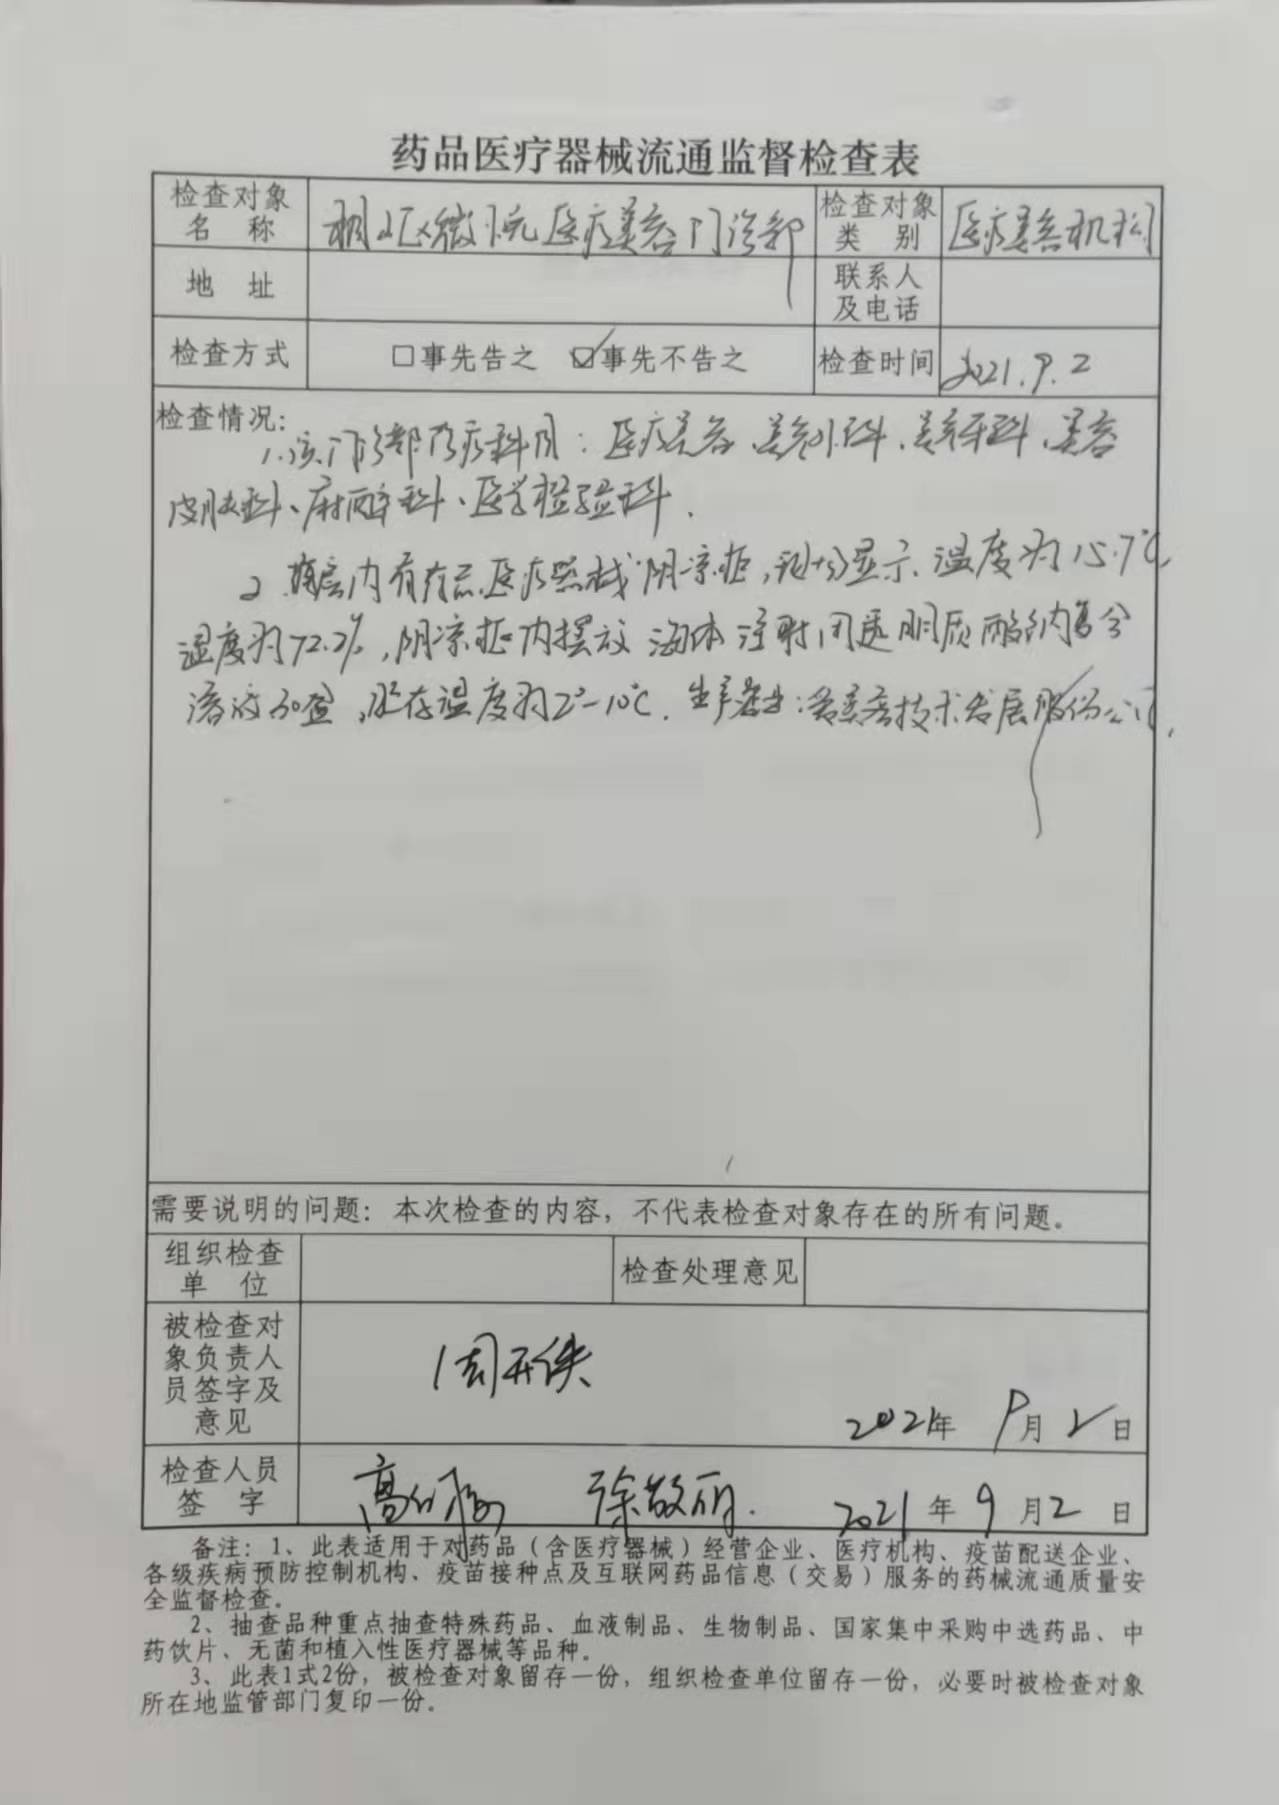 药品医疗器械流通监督检查表
检查对象名称 相山区微 医疗美容门诊部 检查对象类别 医疗美容机构
地址 联系人及电话
检查方式 □事先告之 ☑事先不告之 检查时间 2021.9.2
检查情况:
1.该门诊部诊疗科目：医疗美容、美容外科、美容牙科、美容
皮肤科、麻醉科、医学检验科.
2. 内有药品医疗器械阴凉柜, 显示温度为15.7℃,
湿度为72.2%,阴凉柜内摆放海体注射用透明质酸钠复合
溶液30盒,贮存温度为2°-10℃. 生产 : 技术发展股份公司,
需要说明的问题：本次检查的内容，不代表检查对象存在的所有问题。
组织检查单位 检查处理意见
被检查对象负责人员签字及意见 周开侠
2021年 9月2日
检查人员签字 高 徐敬丽. 2021年9月2日
备注：1、此表适用于对药品（含医疗器械）经营企业、医疗机构、疫苗配送企业、
各级疾病预防控制机构、疫苗接种点及互联网药品信息（交易）服务的药械流通质量安
全监督检查。
2、抽查品种重点抽查特殊药品、血液制品、生物制品、国家集中采购中选药品、中
药饮片、无菌和植入性医疗器械等品种。
3、此表1式2份，被检查对象留存一份，组织检查单位留存一份，必要时被检查对象
所在地监管部门复印一份。